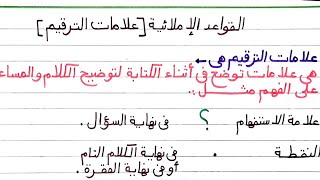 القواعد الإملائية [علامات الترقيم]
علامات الترقيم هى ←
هى علامات توضع فى أثناء الكتابة لتوضيح الكلام والمساعـ
على الفهم مثــل ..
علامة الاستفهام ؟ فى نهاية السؤال .
النقطة . فى نهاية الكلام التام
أو فى نهاية الفقرة .